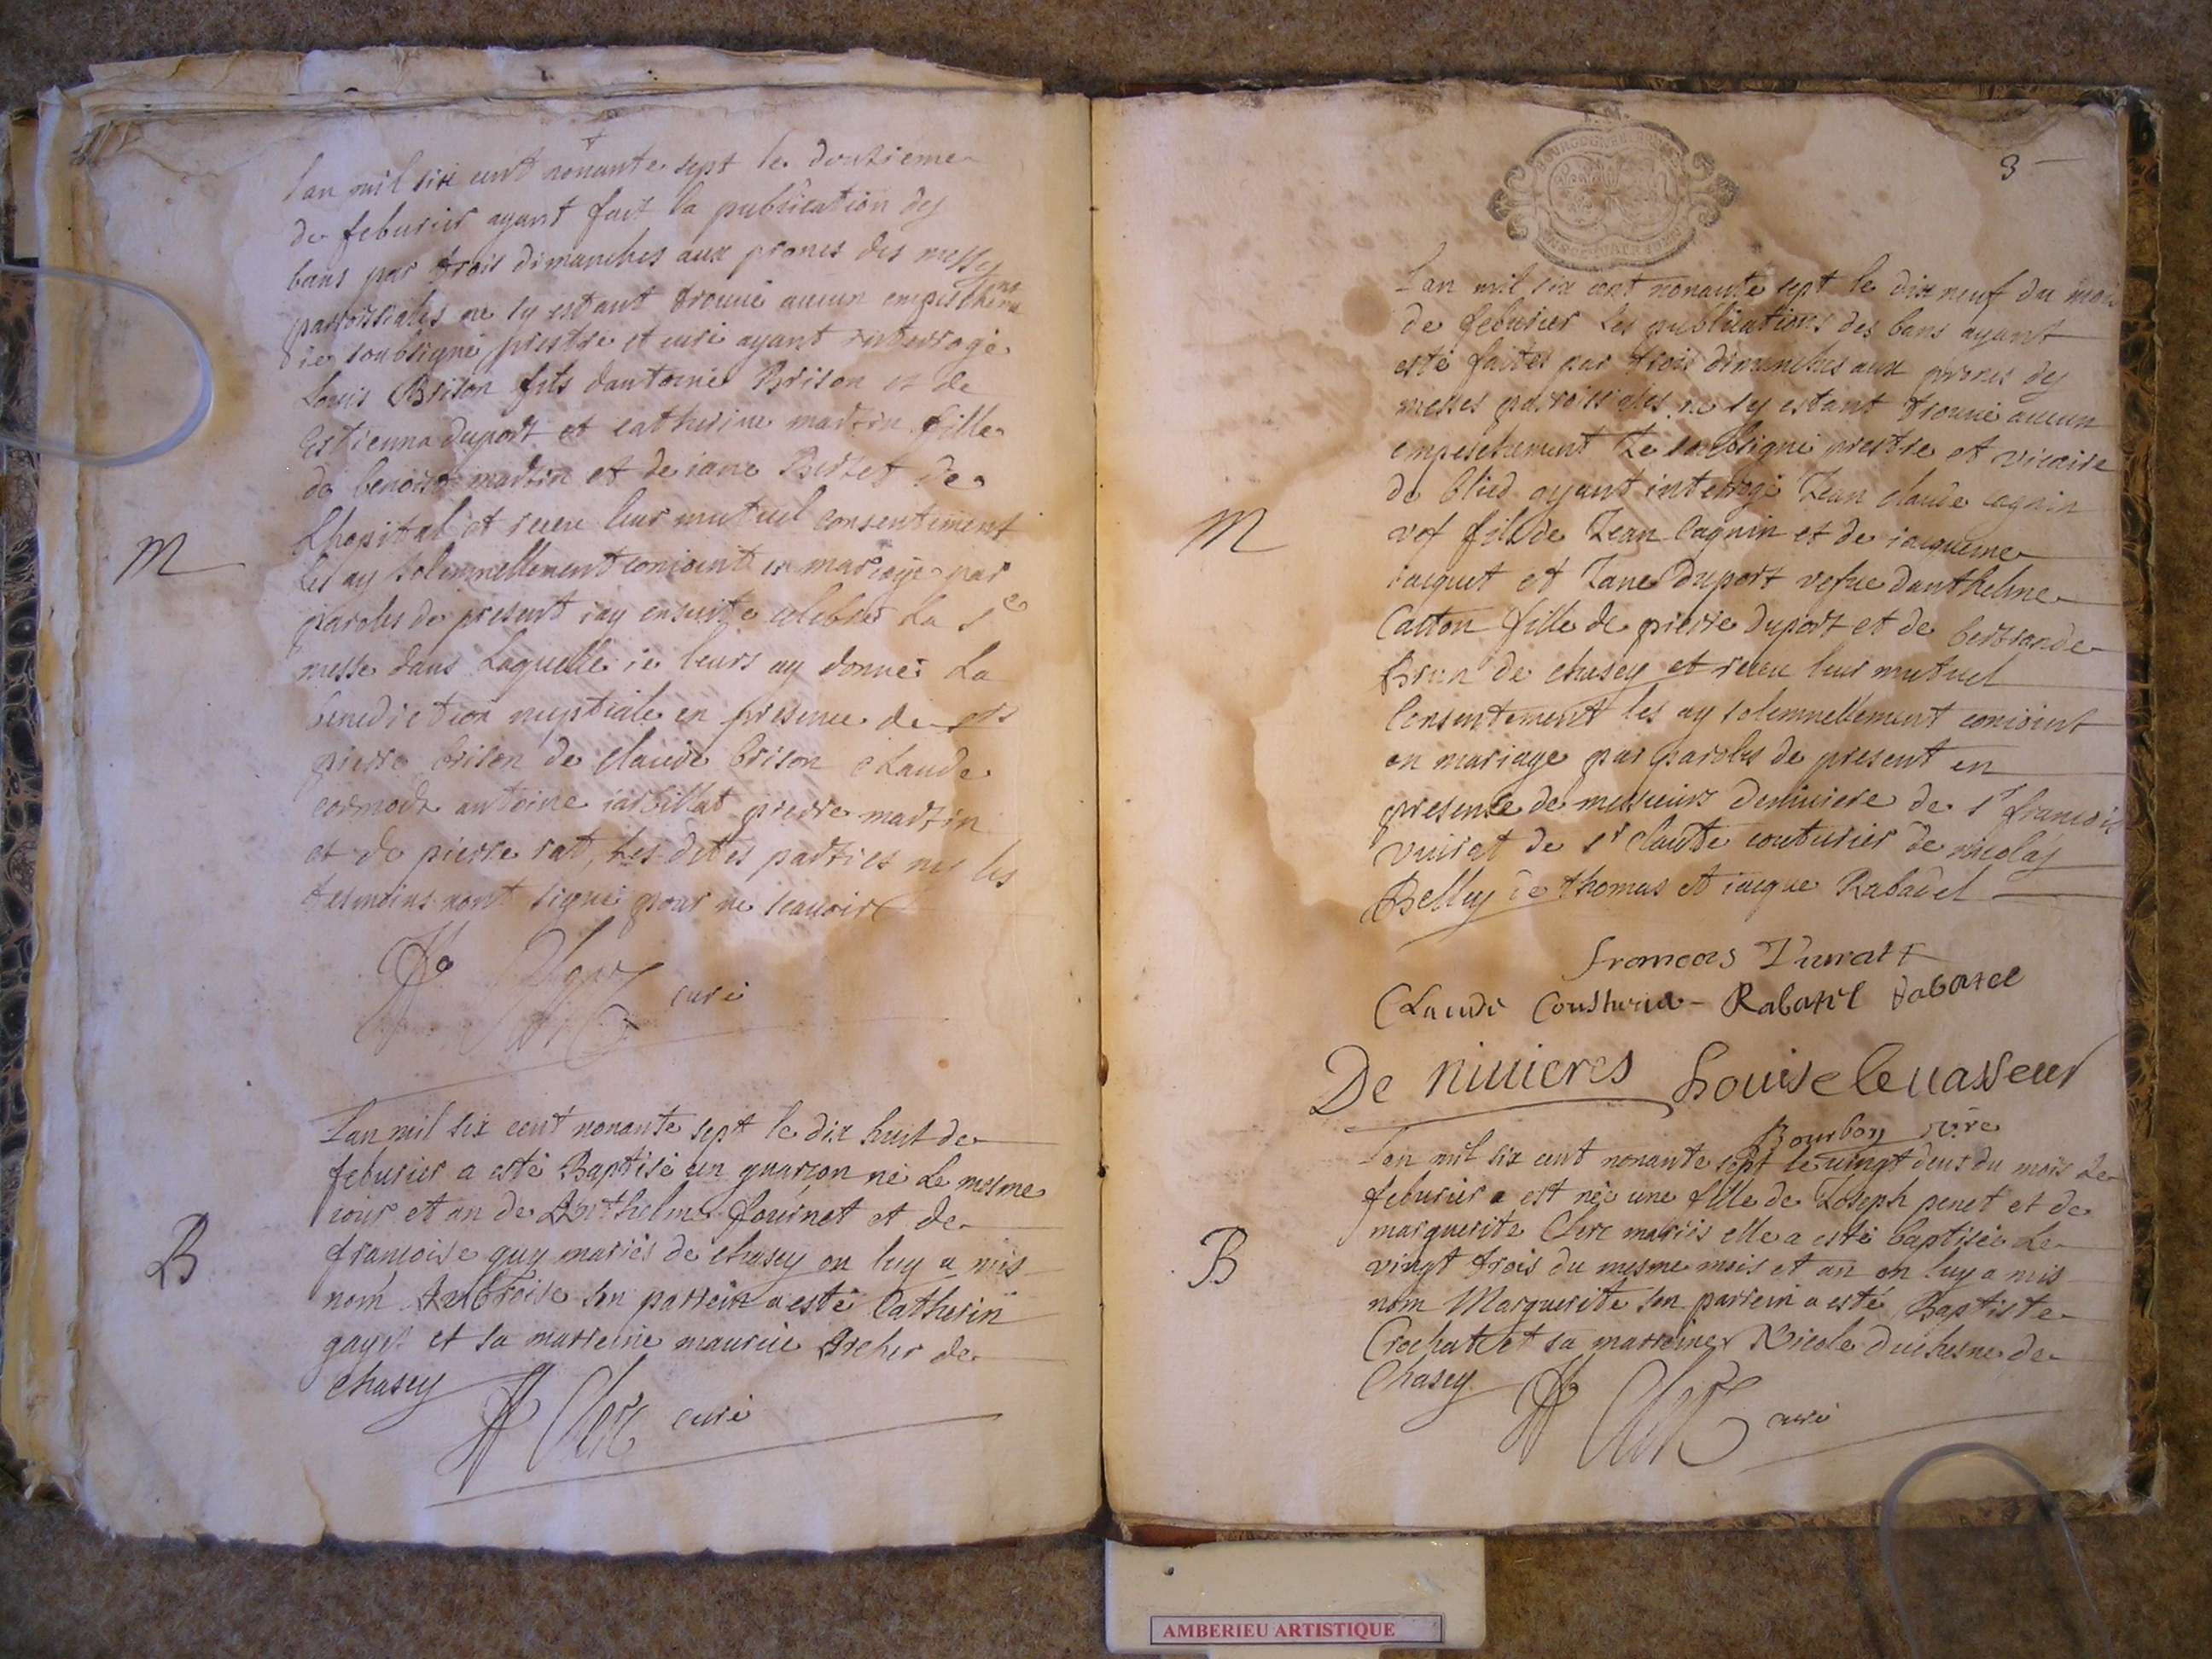 lan mil six cent nonante sept le douzieme
de feburier ayant fait la publication des
bans par trois dimanches aux prones des messes
parroissiales ne sy estant trouué aucun empeschement
ie soubsigné prestre et curé ayant interrogé
Louis Brison fils dantoine Brison et de
Estienna duport et catherine martin fille
de benoist martin et de iane de
Lhopital et receu leur mutuel consentement
les ay solemnellement conioint en mariage par
paroles de present iay ensuite celebré La ste
messe dans Laquelle ie leurs ay donné La
benediction nuptiale en presence de
pierre brison de claude brison claude
antoine iarbillat pierre martin
et de pierre rat, Les dites parties ny les
tesmoins nont signé pour ne scauoir
curé
M
Lan mil six cent nonante sept le dix huit de
feburier a esté Baptisé un guarçon né Le mesme
iour et an de Anthelme fournet et de
francoise guy mariés de chasey on luy a mis
nom Ambroise son parrein a esté Catherin
gayet et sa marreine maurice Archer de
chasey
Clerc curé
B
3
Lan mil six cent nonante sept le dix neuf du mois
de feburier Les publications des bans ayant
esté faites par trois dimanches aux prones des
messes parroissiales ne sy estant trouué aucun
empeschement Ie soubsigné prestre et vicaire
de Blied ayant interrogé Iean claude cagnin
vef fils de Iean Cagnin et de iacqueme
iacquet et Iane Duport vefue danthelme
Catton fille de pierre duport et de bertrande
Brun de chasey et receu leur mutuel
Consentement les ay solemnellement conioint
en mariage par paroles de present en
presence de messieurs deniuiere de sr francois
vuirat de sr claude couturier de nicolas
Belley de thomas et iacque Rabatel
M
francois Vuirat
CLaude Rabatel Rabatel
De niuieres Louise leuasseur
Bourbon vire
Lan mil six cent nonante sept le vingt deux du mois de
feburier a est née une fille de Ioseph penet et de
marguerite Clerc mariés elle a esté baptisée Le
vingt trois du mesme mois et an on luy a mis
nom Marguerite son parrein a esté Baptiste
Crochat et sa marreine Nicole duchesne de
Chasey
Clerc curé
B
AMBERIEU ARTISTIQUE